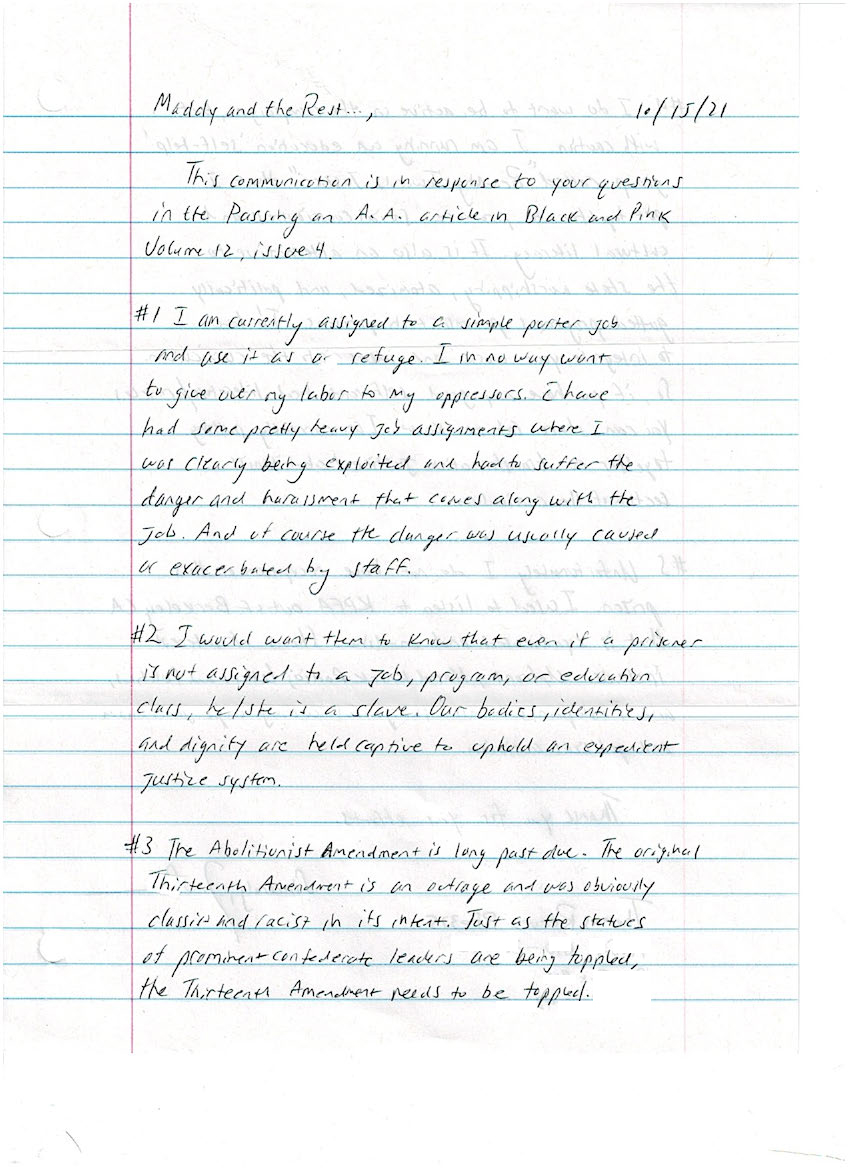 Maddy and the Rest...,
10/15/21
This communication is in response to your questions
in the Passing an A.A. article in Black and Pink
Volume 12, issue 4.
#1 I am currently assigned to a simple porter job
and use it as a refuge. I in no way want
to give over my labor to my oppressors. I have
had some pretty heavy job assignments where I
was clearly being exploited and had to suffer the
danger and harassment that comes along with the
job. And of course the danger was usually caused
or exacerbated by staff.
#2 I would want them to know that even if a prisoner
is not assigned to a job, program, or education
class, he/she is a slave. Our bodies, identities,
and dignity are held captive to uphold an expedient
justice system.
#3 The Abolitionist Amendment is long past due. The original
Thirteenth Amendment is an outrage and was obviously
classist and racist in its intent. Just as the statues
of prominent confederate leaders are being toppled,
the Thirteenth Amendment needs to be toppled.